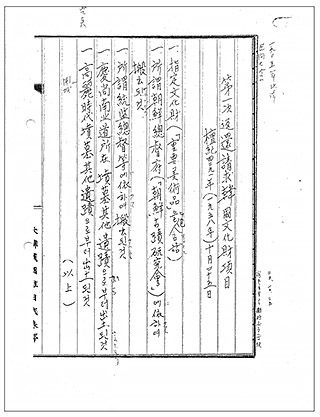 第一次返還請求韓國文化財項目
檀紀四二九一年(一九五八年)十月二十五日
一. 指定文化財(「重要美術品」을包含)
一. 所謂朝鮮總督府(「朝鮮古蹟研究會」)에依하여
搬出된것
一. 所謂統監總督等에依하여搬出된것
一. 慶尚南北道所在 墳墓其他遺蹟으로부터出土된것
一. 高麗時代 墳墓其他 遺蹟으로부터出土된것
(以上)
大韓民國駐日代表部